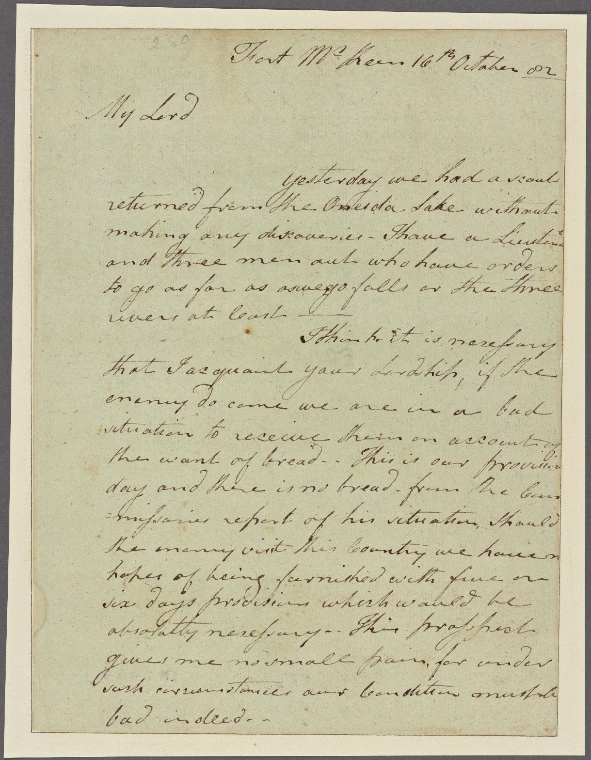 Fort McKeen 16th October 82
My Lord
yesterday we had a scout
returned from the Oneida Lake without
making any discoveries - I have a Lieutent
and three men out who have orders
to go as far as oswego falls or the three
rivers at least
I think it is necessary
that I acquaint your Lordship, if the
enemy do come we are in a bad
situation to receive them on account of
the want of bread - - This is our provision
day and there is no bread - from the Com
=missaries report of his situation, Should
the enemy visit this Country we have n
hopes of being furnished with five or
six days provisions which would be
absolutly necessary - - This prospect
gives me no small pain, for under
such circumstances our Condition must b
bad indeed - -